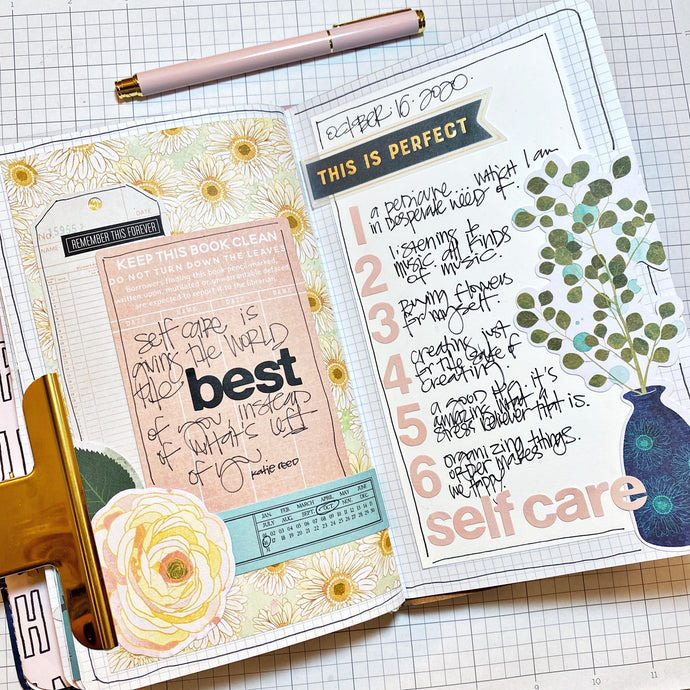 REMEMBER THIS FOREVER
DATE
No. 5955
NAME
KEEP THIS BOOK CLEAN
DO NOT TURN DOWN THE LEAVES
Borrowers finding this book pencil-marked,
written upon, mutilated or unwarrantably defaced,
are expected to report it to the librarian.
self care is
giving the world
the best
of you instead
of what's left
of you
Katie Reed
JAN. FEB. MARCH APRIL MAY JUNE
JULY AUG. SEPT. OCT. NOV. DEC.
october. 15. 2020.
THIS IS PERFECT
1 a pedicure... which I am
in desperate need of.
2 listening to
music. all kinds
of music.
3 Buying flowers
for myself.
4 creating just
for the sake of
creating.
5 a good hug. it's
amazing what a
stress reliever that is.
6 organizing things.
order makes
me happy
self care
10
11